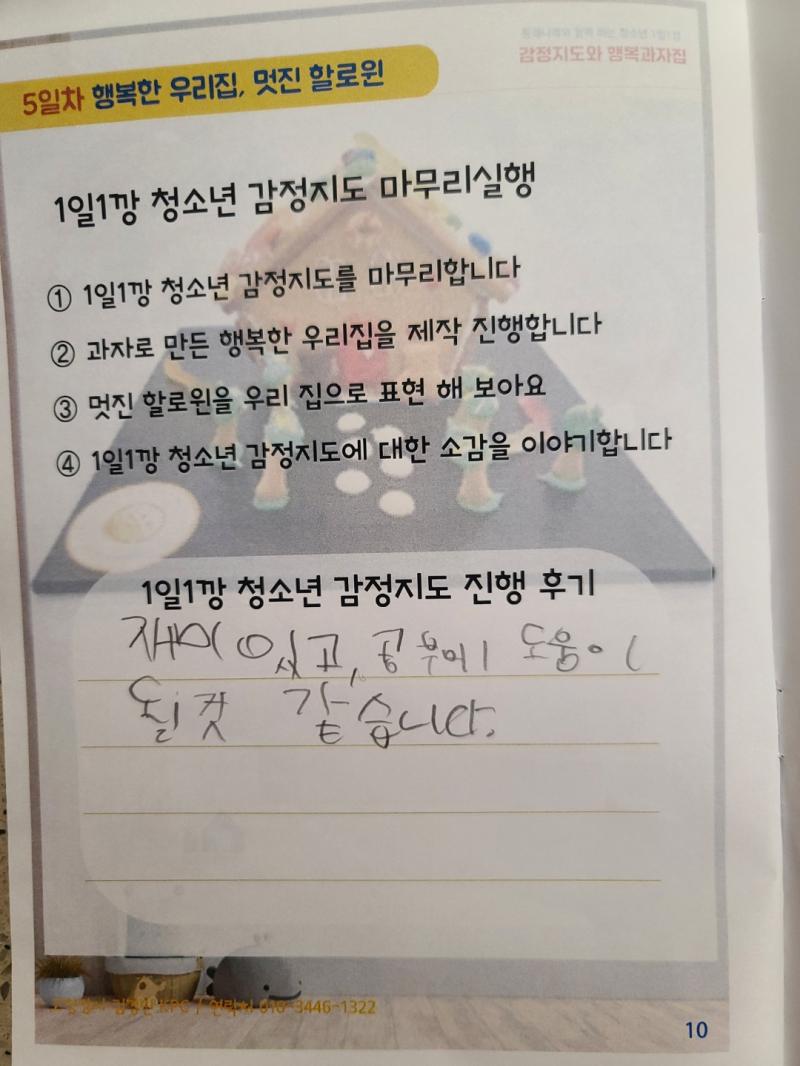 감정지도와 행복과자집
5일차 행복한 우리집, 멋진 할로윈
1일1깡 청소년 감정지도 마무리실행
① 1일1깡 청소년 감정지도를 마무리합니다
② 과자로 만든 행복한 우리집을 제작 진행합니다
③ 멋진 할로윈을 우리 집으로 표현 해 보아요
④ 1일1깡 청소년 감정지도에 대한 소감을 이야기합니다
1일1깡 청소년 감정지도 진행 후기
재미 있고, 공부에 도움이
될것 같습니다.
연락처 010-3446-1322
10